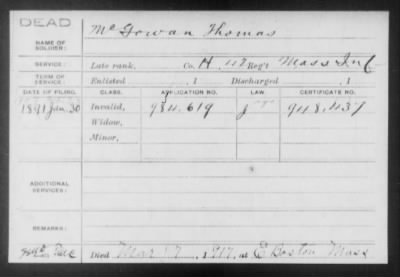 DEAD
Mc Gowan Thomas
NAME OF SOLDIER:
SERVICE: Late rank, Co. H, 42 Reg't Mass Inf
TERM OF SERVICE: Enlisted , 1 Discharged , 1
DATE OF FILING. CLASS. APPLICATION NO. LAW. CERTIFICATE NO.
1891 Jan. 30 Invalid, 984.619 948.437
Widow,
Minor,
ADDITIONAL SERVICES:
REMARKS:
Died Mar 1917, at E Boston Mass